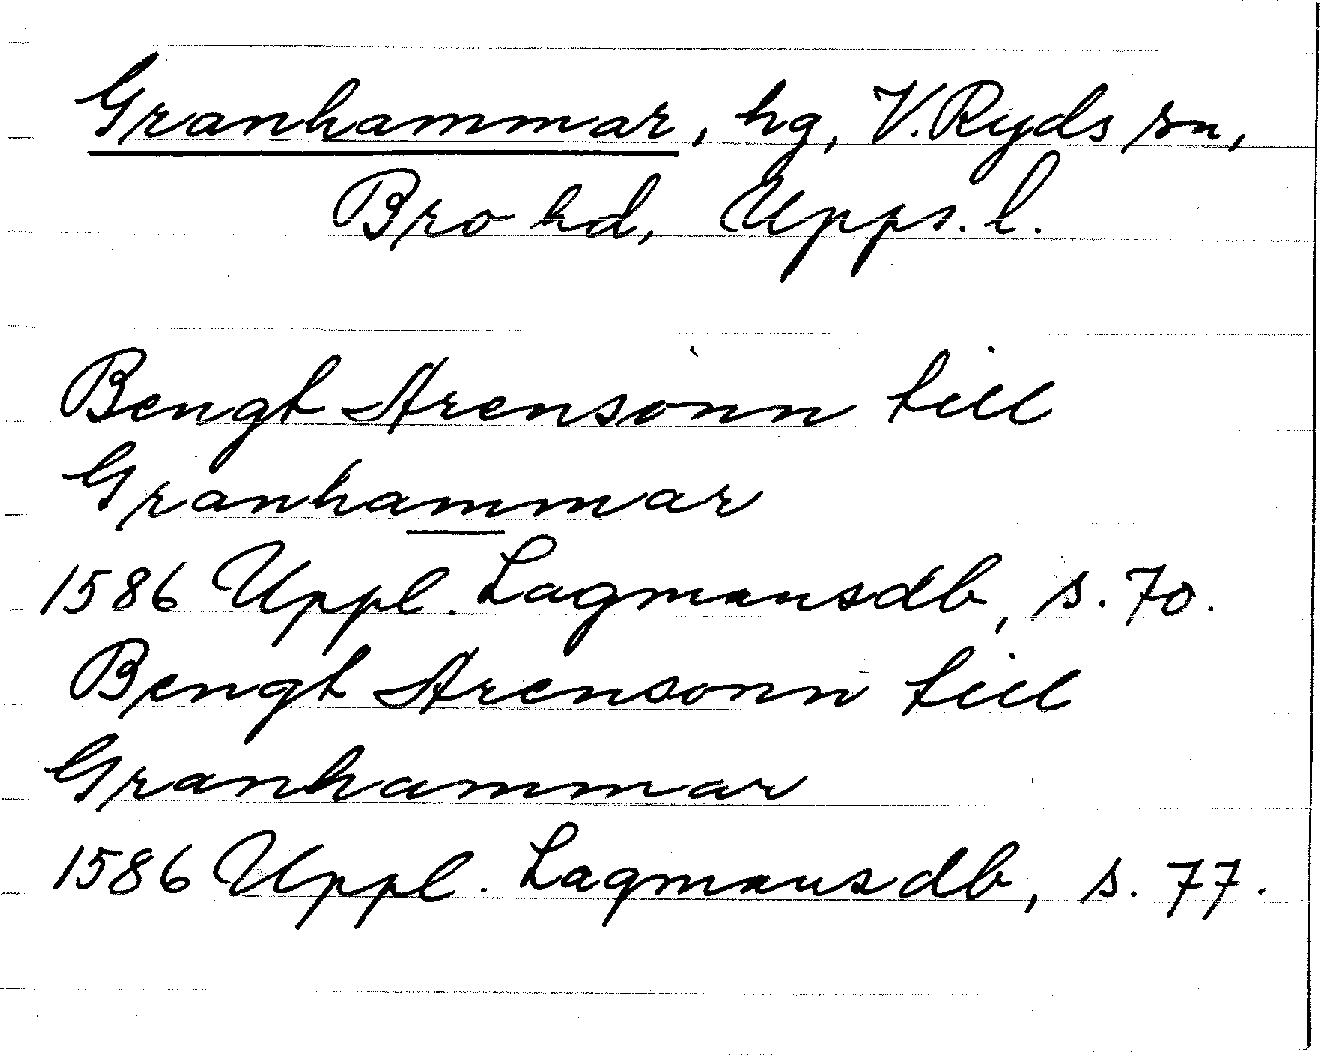 Granhammar, hg, V. Ryds sn,
Bro hd, Upps. l.
Bengt Arensonn till
Granhammar
1586 Uppl. Lagmansdb, s. 70.
Bengt Arensonn till
Granhammar
1586 Uppl. Lagmansdb, s. 77.